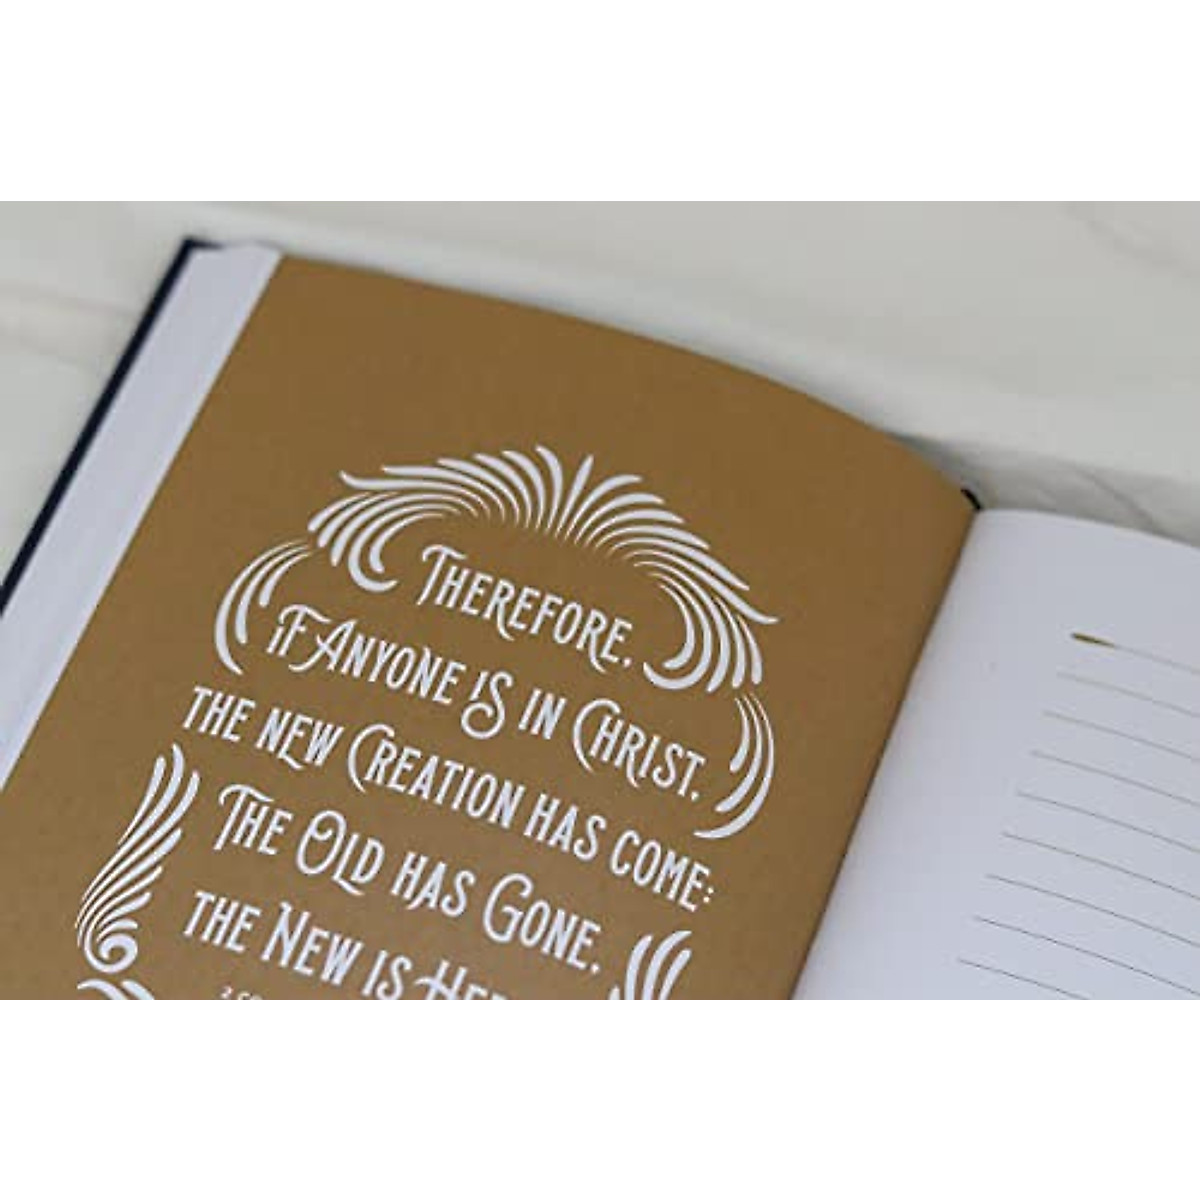 Therefore,
if Anyone is in Christ,
the new Creation has come:
The Old has Gone,
the New is